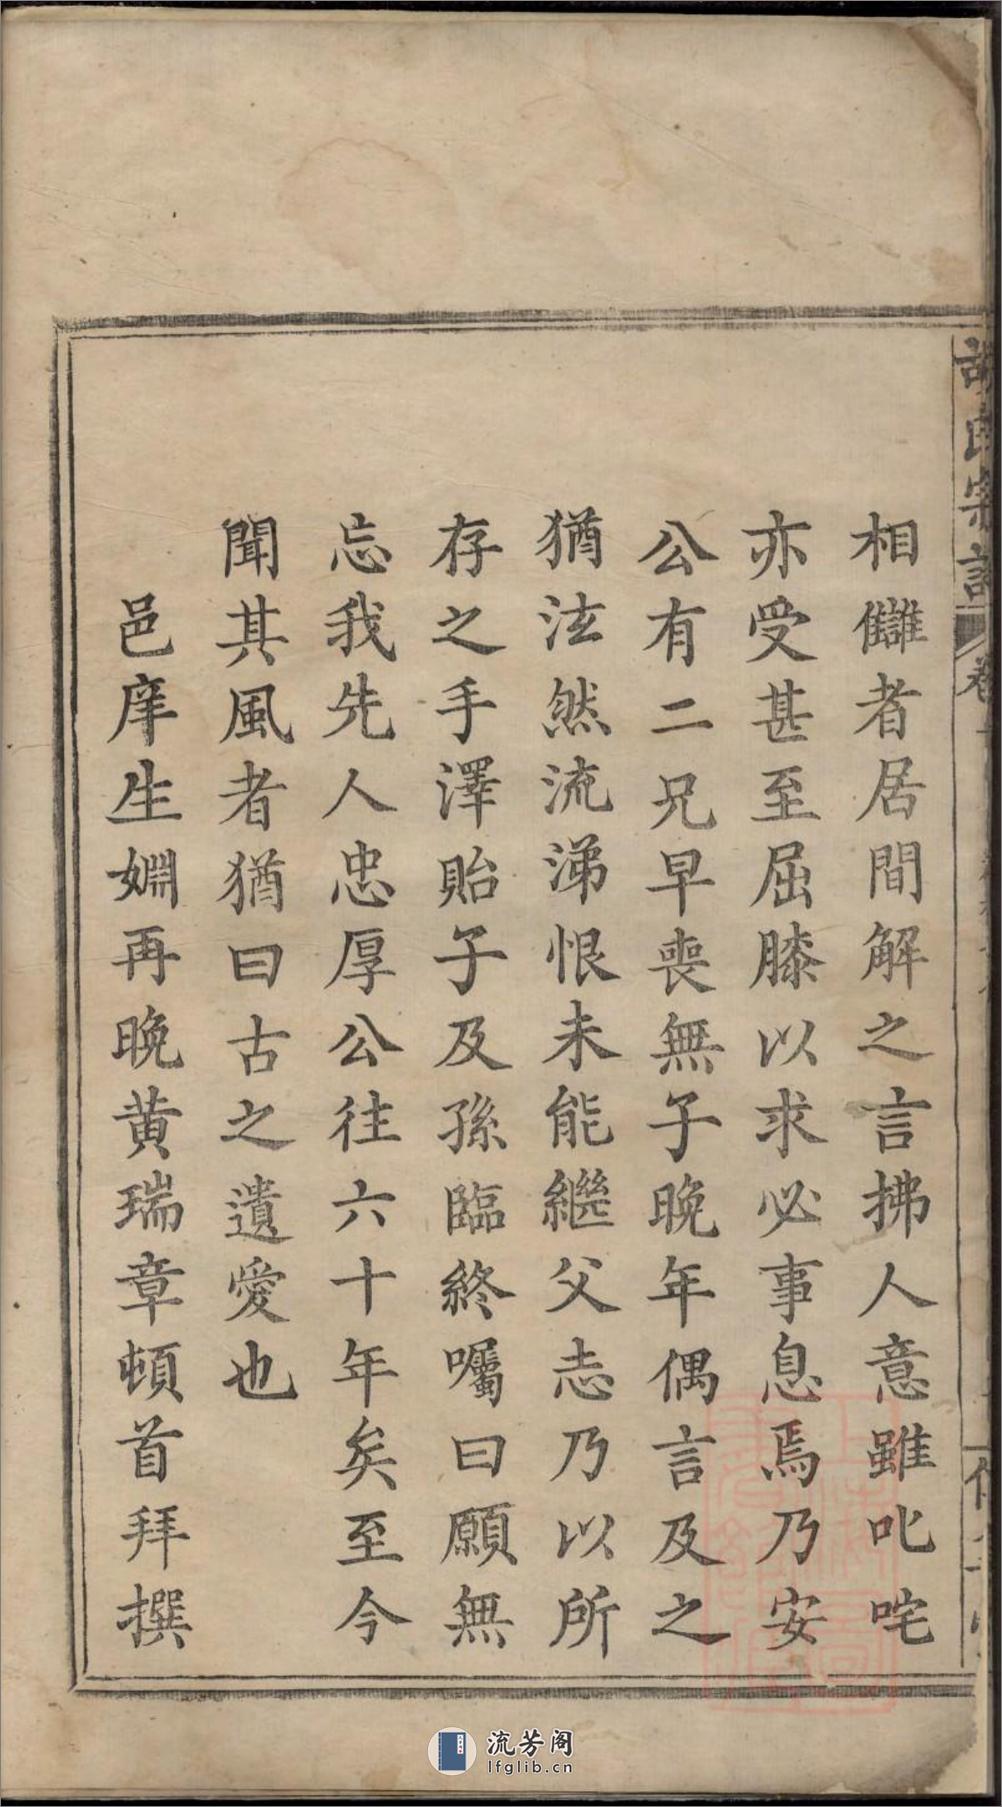 胡氏宗譜
卷
相讎者居間解之言拂人意雖叱咤
亦受甚至屈膝以求必事息焉乃安
公有二兄早喪無子晚年偶言及之
猶泫然流涕恨未能繼父志乃以所
存之手澤貽子及孫臨終囑曰願無
忘我先人忠厚公往六十年矣至今
聞其風者猶曰古之遺愛也
邑庠生姻再晚黄瑞章頓首拜撰
流芳阁
lfglib.cn